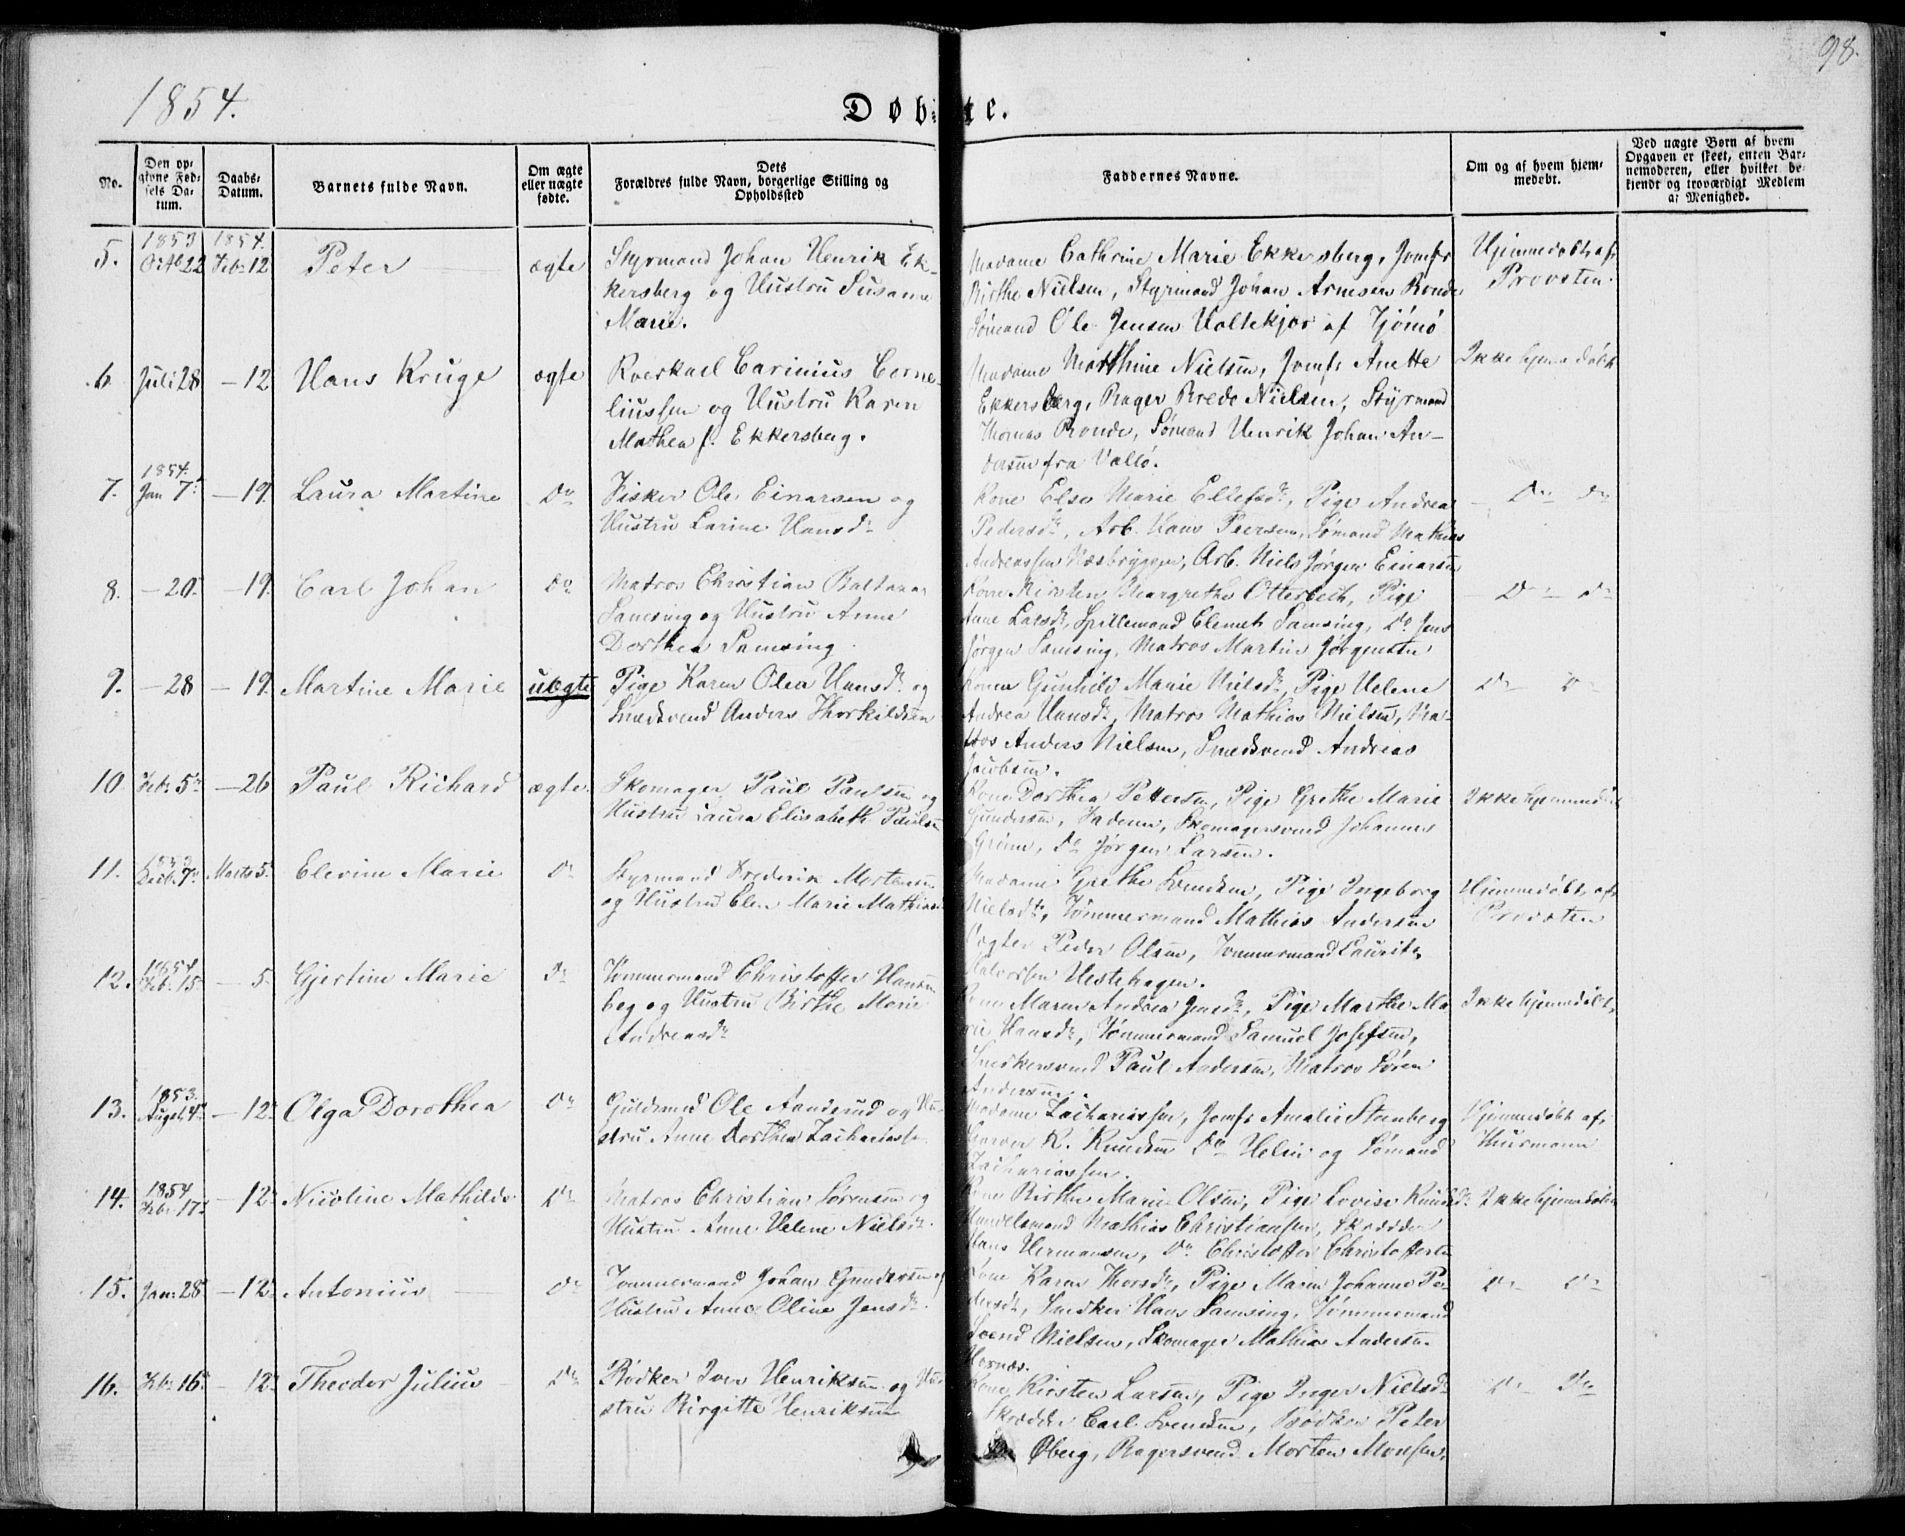 98.
1854.
Døbte.
No.
Den opgivne Fødsels Datum.
Daabs-Datum.
Barnets fulde Navn.
Om ægte eller uægte fødte.
Dets Forældres fulde Navn, borgerlige Stilling og Opholdssted
Faddernes Navne.
Om og af hvem hjemmedøbt.
Ved uægte Børn af hvem Opgaven er skeet, enten Barnemoderen, eller hvilket bekjendt og troværdigt Medlem af Menighed.
5. 1853 Octb 22 1854. Febr 12 Peter ægte
Styrmand Johan Henrik Ek-
kersberg og Hustru Susanne
Marie.
Madame Cathrine Marie Ekkersberg, Jomfr
Birthe Nielsen, Styrmand Johan Arnesen Ronde
Sømand Ole Jensen Holtekjær af Tjømø
Hjemmedøbt af
Provsten.
6 Juli 28 – 12 Hans Kruge ægte
Carinius Corne-
liussen og Hustru Karen
Mathea f. Ekkersberg.
Madame Matthine Nielsen, Jomfr Anette
Ekkersberg, Bager Brede Nielsen, Styrmand
Thomas Ronde, Sømand Henrik Johan An-
dersen fra Vallø.
Ikke hjemmedøbt
7. 1854. Jan 7 – 19. Laura Martine Do
Fisker Ole Einarsen og
Hustru Larine Hansdr
Kone Else Marie Ellefsdr, Pige Andrea
Pedersdr, Arb. Hans Peersen, Sømand Mathias
Andreassen Næsbryggen, Arb. Niels Jørgen Einarsen
– Do Do
8. – 20. – 19. Carl Johan Do
Matros Christian Baltazar
Samsing og Hustru Anne
Dorthea Samsing.
Kone Kirsten Margrethe Otterbech, Pige
Anne Larsdr, Spillemand Clemet Samsing, Do Jens
Jørgen Samsing, Matros Martin Jørgensen
– Do – Do
9. – 28 – 19. Martine Marie uægte
Pige Karen Olea Hansdr og
Smedsvend Anders Thorkildsen
Konen Gunhild Marie Nielsdr, Pige Helene
Andrea Hansdr, Matros Mathias Nielsen, Ma-
tros Anders Nielsen, Smedsvend Andreas
Jacobsen.
Do Do
10 Febr 5 – 26 Paul Richard ægte
Skomager Paul Paulsen og
Hustru Laura Elisabeth Paulsen
Kone Dorthea Pettersen, Pige Grethe Marie
Gundersen, Faderen, Skomagersvend Johannes
Grönn, Do Jørgen Larsen.
Ikke hjemmedøbt
11. 1853 Decb. 7 Marts 5. Elevine Marie Do
Styrmand Frederik Mortensen
og Hustru Elen Marie Mathisen
Madame Grethe Svendsen, Pige Ingeborg
Nielsdr, Tømmermand Mathias Andersen
Peder Olsen, Tømmermand Laurits
Halvorsen Hestehagen.
Hjemmedøbt af
Provsten
12. 1854 Feb. 15 – 5 Gjertine Marie Do
Tømmermand Christoffer Hansen
berg og Hustru Birthe Marie
Andreasdr
Kone Maren Andrea Jensdr, Pige Marthe Ma-
rie Hansdr, Tømmermand Samuel Josefsen,
Snedkersvend Paul Andersen, Matros Søren
Andersen.
Ikke hjemmedøbt
13. 1853. August 4 – 12 Olga Dorothea Do
Guldsmed Ole Aanderud og Hu-
stru Anne Dorthea Zachariassen
Madame Zachariassen, Jomfr Amalie Steenberg
Garver K. Knudsen Do Helin og Sømand
Zachariassen.
Hjemmedøbt af
Thurmann
14. 1854 Febr. 17 – 12 Nicoline Mathilde Do
Matros Christian Sørensen og
Hustru Anne Helene Nielsdr.
Kone Birthe Marie Olsen, Pige Lovise Knudsdr
Handelsmand Mathias Christiansen, Skrædder
Hans Hermansen, Do Christoffer Christoffersen
Ikke hjemmedøbt
15. Jan. 28 – 12 Antonius Do
Tømmermand Johan Gundersen og
Hustru Anne Oline Jensdr.
Kone Karen Thorsdr, Pige Maren Johanne Pe-
dersdr, Snedker Hans Samsing, Tømmermand
Svend Nielsen, Skomager Mathias Andersen
Hornæs.
Do Do
16. Feb. 16 – 12 Theodor Julius Do
Bødker Iver Henriksen og Hu-
stru Birgitte Henriksen
Kone Kirsten Larsen, Pige Inger Nielsdr
Skrædder Carl Svendsen, Bødker Peter
Øberg, Bagersvend Morten Monsen,
Do Do